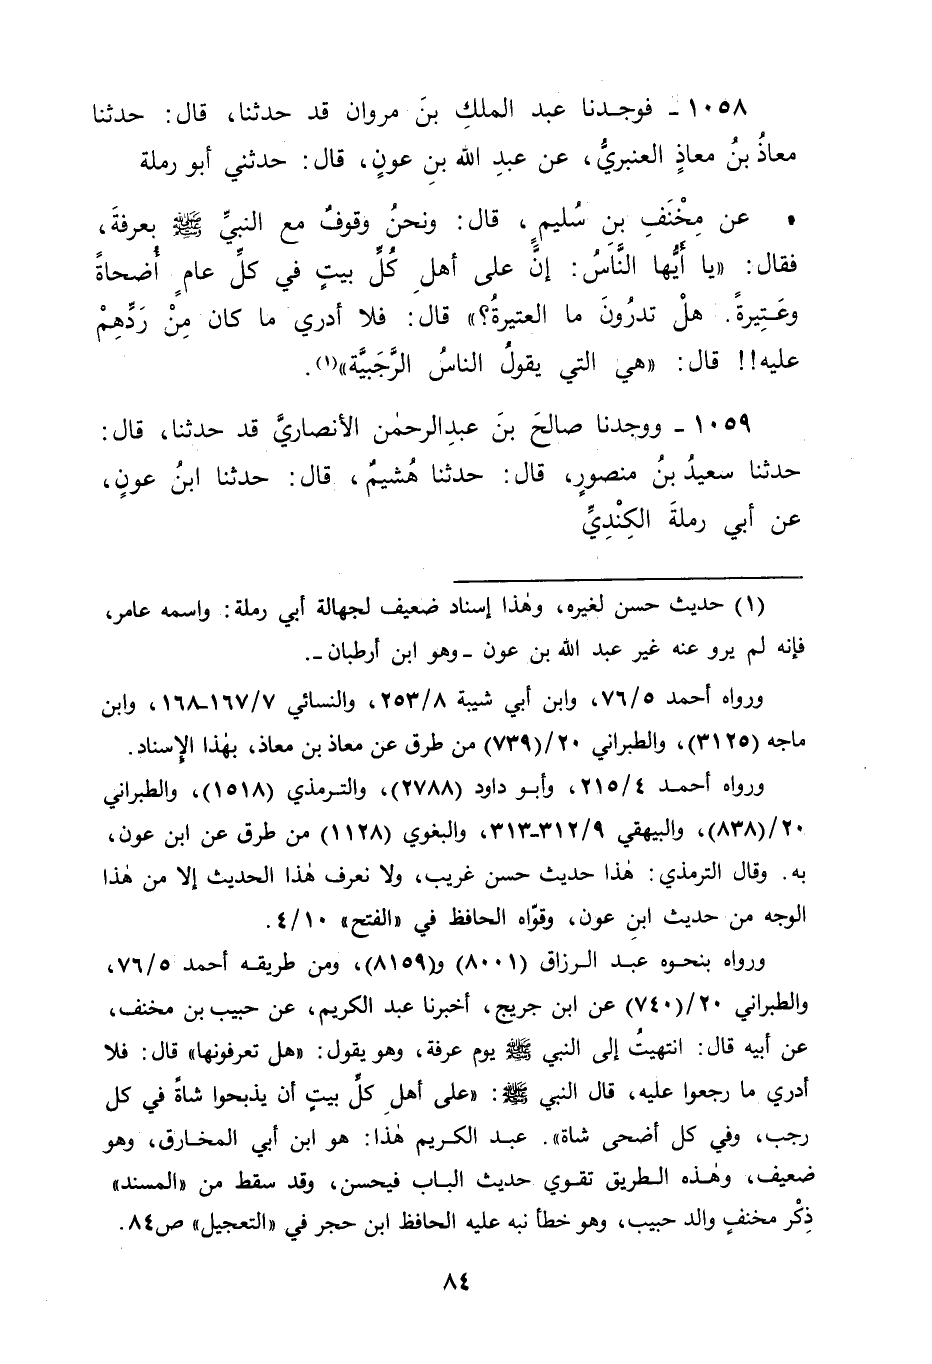 ١٠٥٨ ـ فوجـدنا عبد الملكِ بنَ مروان قد حدثنا، قال: حدثنا
معاذُ بنُ معاذٍ العنبريُّ، عن عبدِ الله بنِ عونٍ، قال: حدثني أبو رملة
• عن مِخْنَفِ بنِ سُليمٍ، قال: ونحنُ وقوفٌ مع النبيِّ ﷺ بعرفةَ،
فقال: «يا أَيُّها النَّاسُ: إنَّ على أهلِ كُلِّ بيتٍ في كلِّ عامٍ أُضحاةً
وعَـتِيرةً. هلْ تدرُونَ ما العتيرةُ؟» قال: فلا أدري ما كان مِنْ رَدِّهِمْ
عليه!! قال: «هي التي يقولُ الناسُ الرَّجَبيَّة»(١).
١٠٥٩ ـ ووجدنا صالحَ بنَ عبدِالرحمٰن الأنصاريَّ قد حدثنا، قال:
حدثنا سعيدُ بنُ منصورٍ، قال: حدثنا هُشيمٌ، قال: حدثنا ابنُ عونٍ،
عن أبي رملةَ الكِنْدِيِّ
(١) حديث حسن لغيره، وهٰذا إسناد ضعيف لجهالة أبي رملة: واسمه عامر،
فإنه لم يرو عنه غير عبد الله بن عون ـ وهو ابن أرطبان ـ.
ورواه أحمد ٧٦/٥، وابن أبي شيبة ٢٥٣/٨، والنسائي ١٦٧/٧ـ١٦٨، وابن
ماجه (٣١٢٥)، والطبراني ٢٠/(٧٣٩) من طرق عن معاذ بن معاذ، بهٰذا الإسناد.
ورواه أحمـد ٢١٥/٤، وأبـو داود (٢٧٨٨)، والتـرمذي (١٥١٨)، والطبراني
٢٠/(٨٣٨)، والبيهقي ٣١٢/٩ـ٣١٣، والبغوي (١١٢٨) من طرق عن ابن عون،
به. وقال الترمذي: هٰذا حديث حسن غريب، ولا نعرف هٰذا الحديث إلا من هٰذا
الوجه من حديث ابنِ عون، وقوّاه الحافظ في «الفتح» ٤/١٠.
ورواه بنحـوه عبـد الـرزاق (٨٠٠١) و(٨١٥٩)، ومن طريقـه أحمد ٧٦/٥،
والطبراني ٢٠/(٧٤٠) عن ابن جريج، أخبرنا عبد الكريم، عن حبيب بن مخنف،
عن أبيه قال: انتهيتُ إلى النبي ﷺ يوم عرفة، وهو يقول: «هل تعرفونها» قال: فلا
أدري ما رجعوا عليه، قال النبي ﷺ: «على أهلِ كلِّ بيتٍ أن يذبحوا شاةً في كل
رجب، وفي كل أضحى شاة». عبـد الكـريم هٰذا: هو ابن أبي المخـارق، وهو
ضعيف، وهٰـذه الـطريق تقـوي حديث البـاب فيحسن، وقد سقط من «المسند»
ذِكْر مخنفٍ والد حبيب، وهو خطأ نبه عليه الحافظ ابن حجر في «التعجيل» ص٨٤.
٨٤